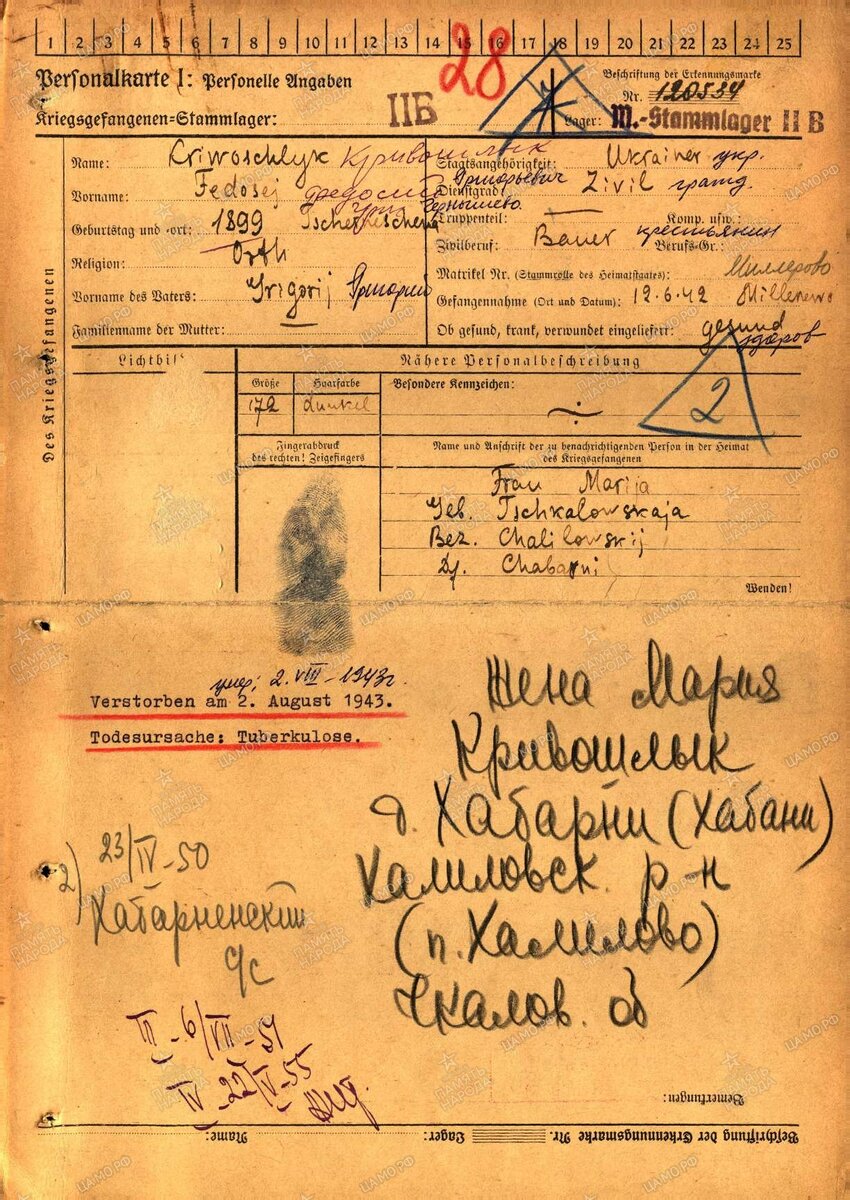 1 2 3 4 5 6 7 8 9 10 11 12 13 14 15 16 17 18 19 20 21 22 23 24 25
28
Personalkarte I: Personelle Angaben
Beschriftung der Erkennungsmarke
Nr. 120534
Kriegsgefangenen-Stammlager: IIБ
Lager: M.-Stammlager II B
Des Kriegsgefangenen
Name: Kriwoschlyk Кривошлык
Vorname: Fedosej Федосий Григорьевич
Geburtstag und -ort: 1899
Religion: Orth
Vorname des Vaters: Grigorij Григорий
Familienname der Mutter: —
Staatsangehörigkeit: Ukrainer укр.
Dienstgrad: Zivil гражд.
Truppenteil: — Komp. usw.:
Zivilberuf: Bauer крестьянин Berufs-Gr.:
Matrikel Nr. (Stammrolle des Heimatstaates): Миллерово
Gefangennahme (Ort und Datum): 12.6.42 Millerewo
Ob gesund, krank, verwundet eingeliefert: gesund
здоров
Lichtbil
Nähere Personalbeschreibung
Größe Haarfarbe
172 dunkel
Besondere Kennzeichen:
2
Fingerabdruck
des rechten! Zeigefingers
Name und Anschrift der zu benachrichtigenden Person in der Heimat
des Kriegsgefangenen
Frau Marija
Geb. Tschkalowskaja
Bez. Chalilowskij
Df. Chabarni
Wenden!
умер: 2.VIII-1943г.
Verstorben am 2. August 1943.
Todesursache: Tuberkulose.
Жена Мария
Кривошлык
д. Хабарни (Хабани)
Халиловск. р-н
(п. Халилово)
Чкалов. об
2) 23/IV-50
Хабарненский
с/с
III-6/VII-51
IV-22/IV-55
Bemerkungen:
Name: Lager: Beschriftung der Erkennungsmarke Nr.
ПАМЯТЬ НАРОДА
ЦАМО.РФ